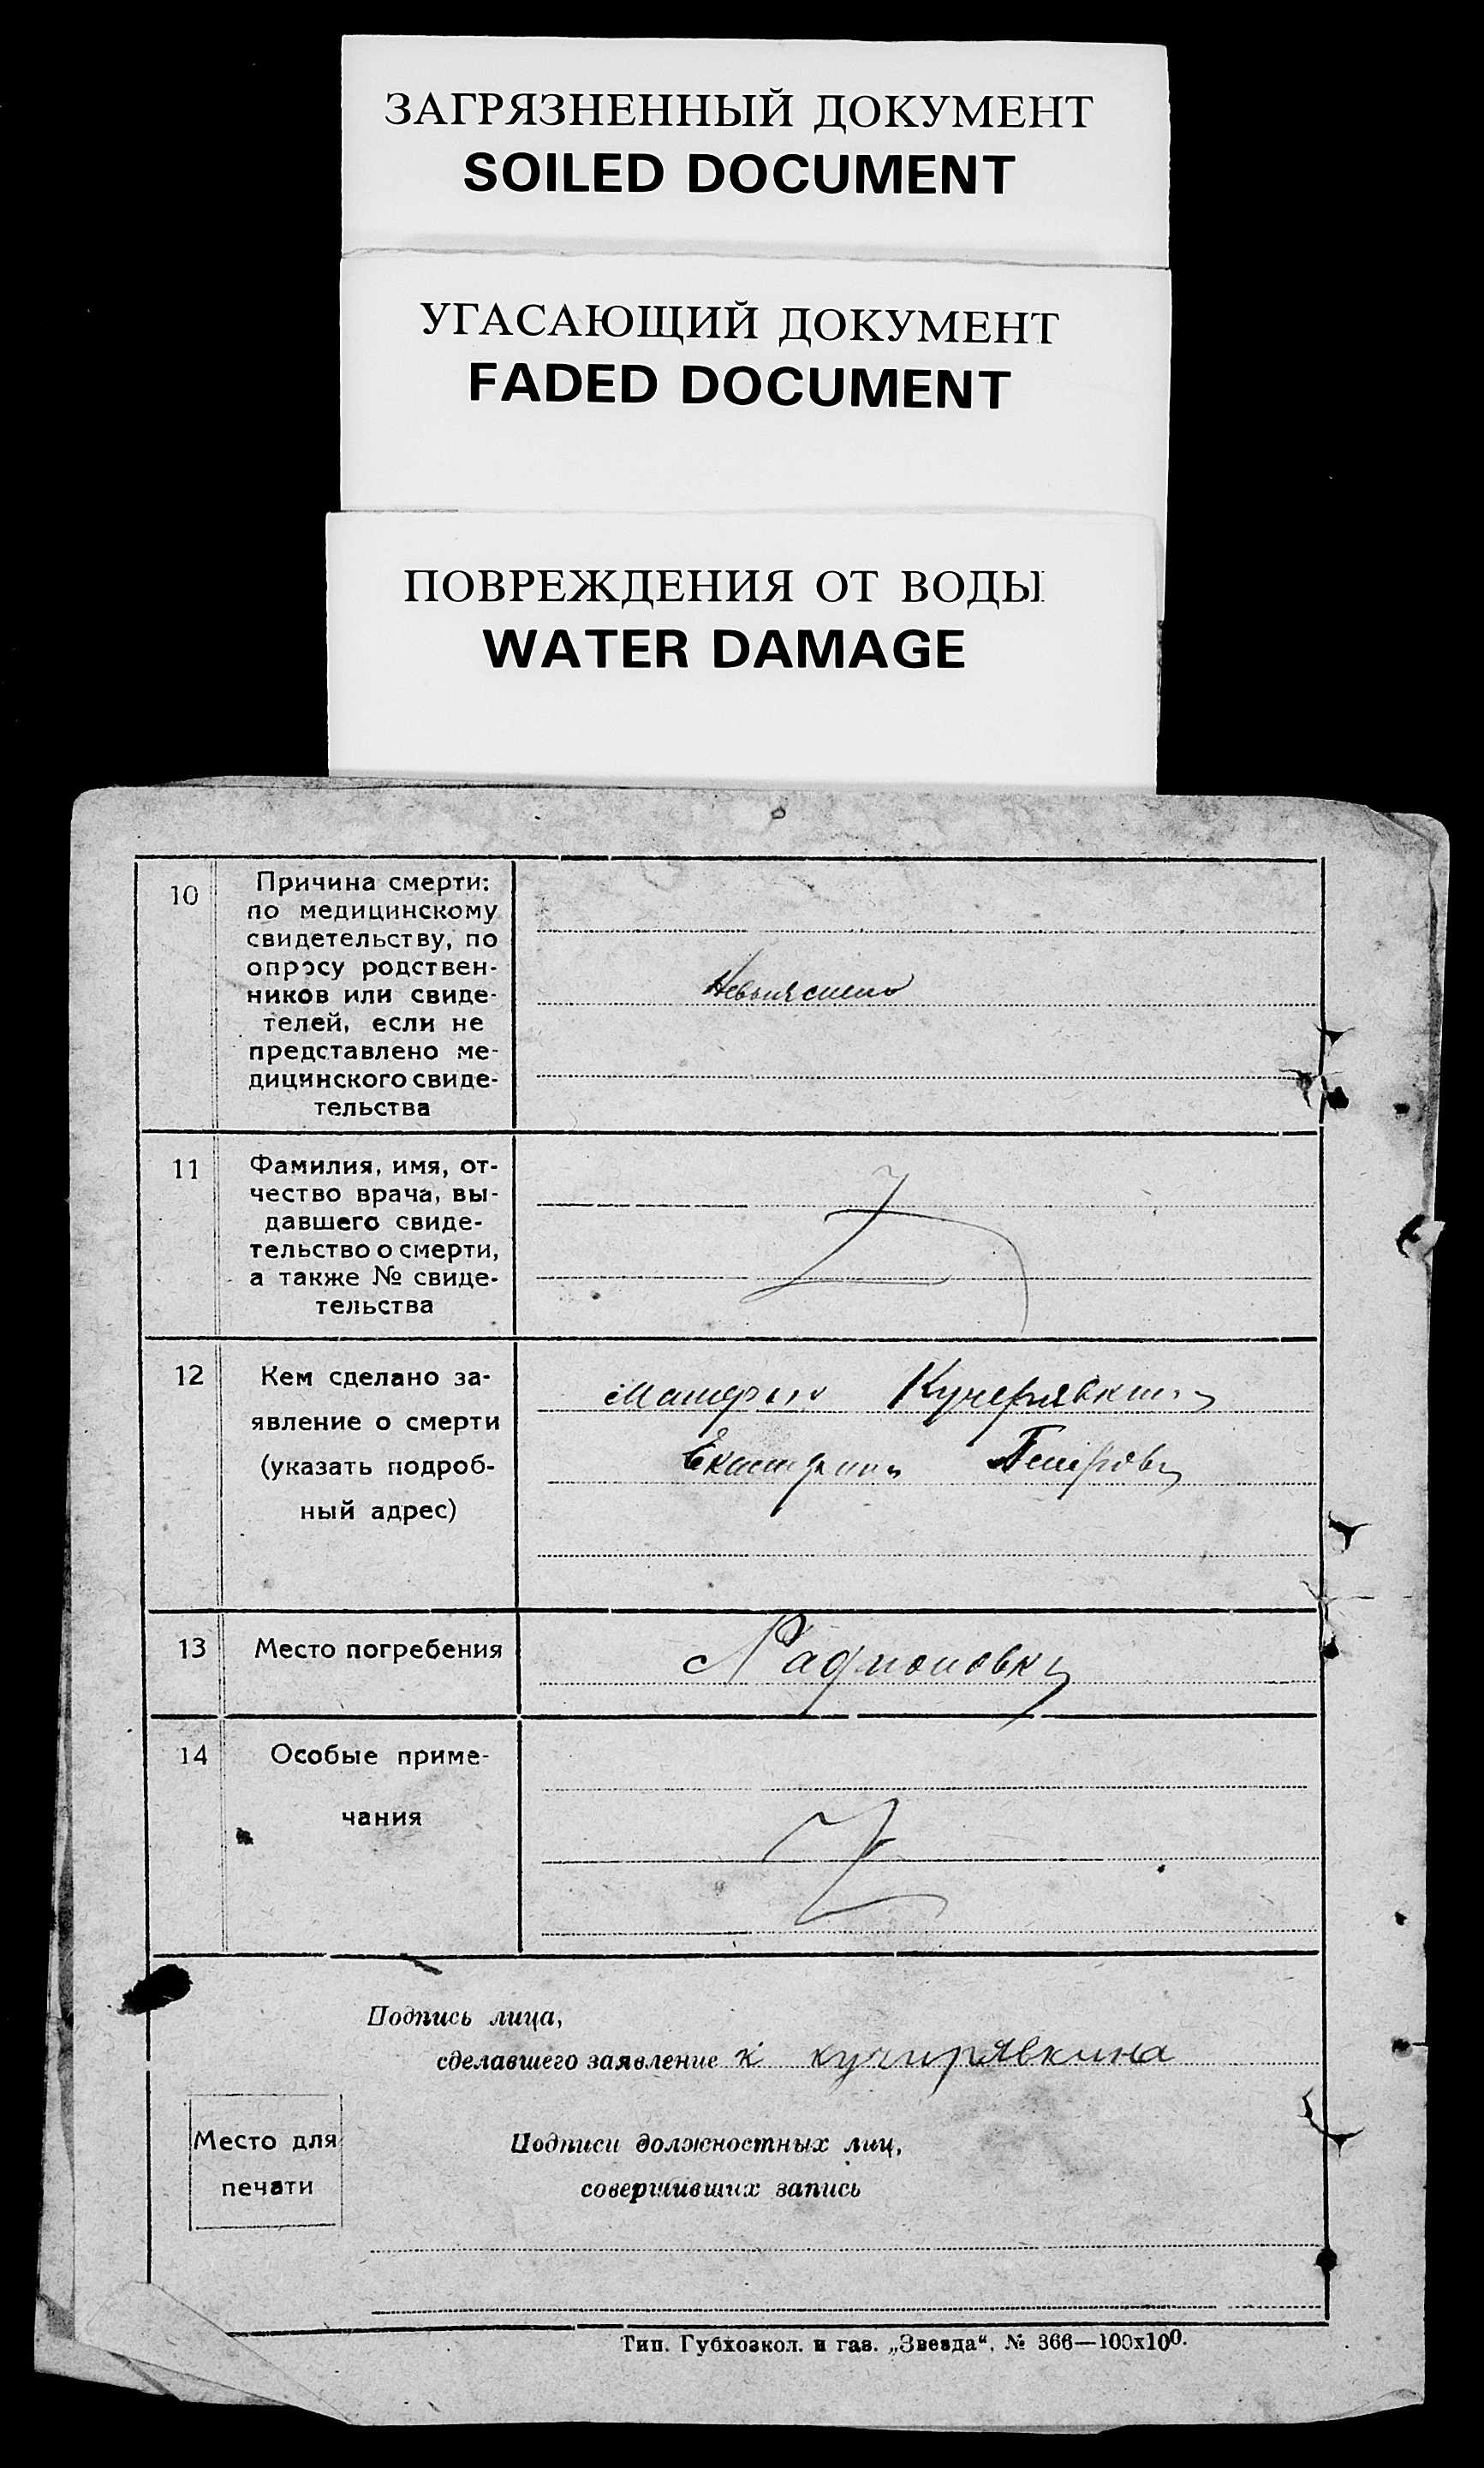 ЗАГРЯЗНЕННЫЙ ДОКУМЕНТ
SOILED DOCUMENT
УГАСАЮЩИЙ ДОКУМЕНТ
FADED DOCUMENT
ПОВРЕЖДЕНИЯ ОТ ВОДЫ
WATER DAMAGE
10
Причина смерти:
по медицинскому
свидетельству, по
опросу родствен-
ников или свиде-
телей, если не
представлено ме-
дицинского свиде-
тельства
Невыяснено
11
Фамилия, имя, от-
чество врача, вы-
давшего свиде-
тельство о смерти,
а также № свиде-
тельства
12
Кем сделано за-
явление о смерти
(указать подроб-
ный адрес)
Кучерявкина
Екатерина
13
Место погребения
14
Особые приме-
чания
Подпись лица,
сделавшего заявление к кучирявкина
Место для
печати
Подписи должностных лиц,
совершивших запись
Тип. Губхозкол. и газ. „Звезда“, № 366—100х100.